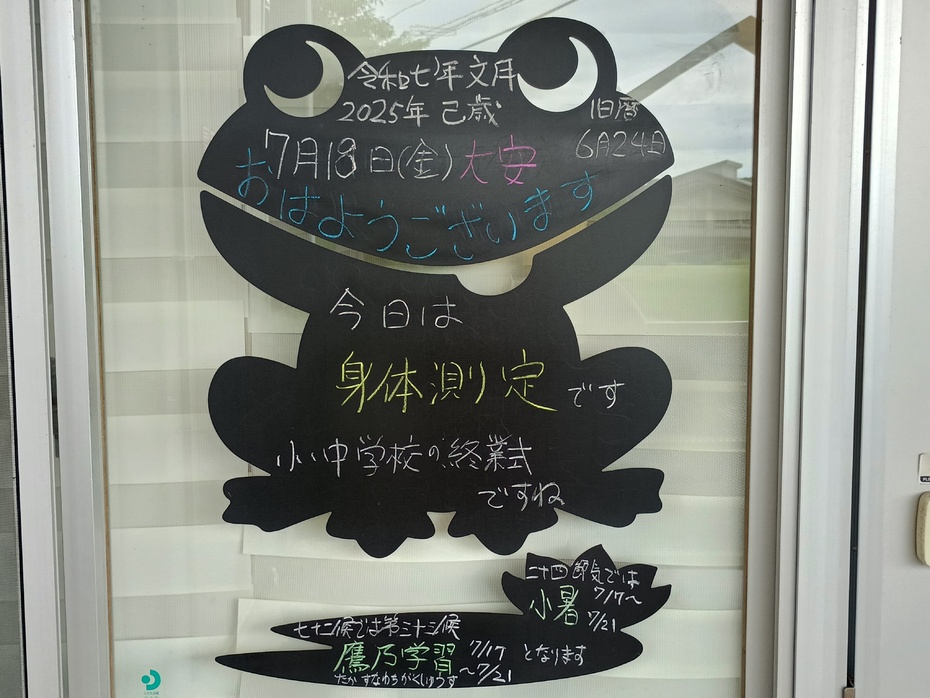 令和七年文月
2025年 己歳
旧暦
6月24日
7月18日(金)大安
おはようございます
今日は
身体測定です
小中学校の終業式
ですね
二十四節気では
小暑 7/17〜
7/21
七十二候では第三十三候
鷹乃学習 7/17
〜7/21
となります
たかすなわちがくしゅうす